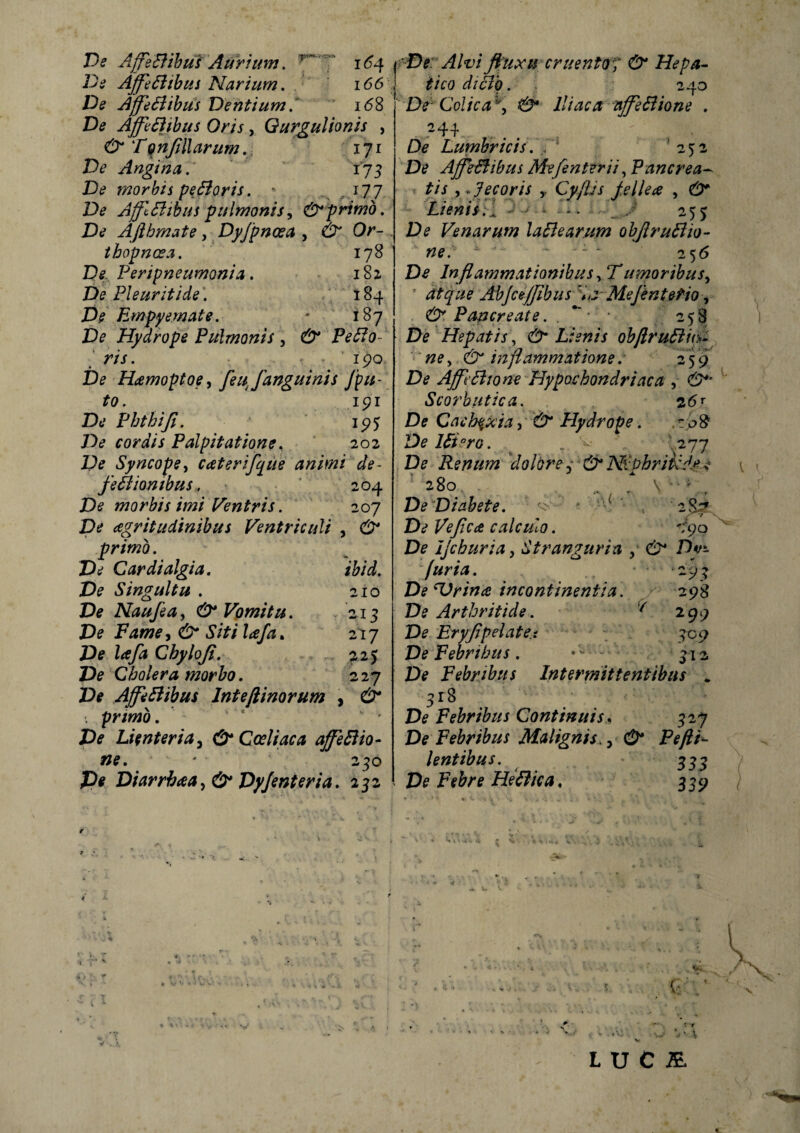 De Affectibus Aurium. 164
De Affectibus Narium. 166
De Affectibus Dentium. 168
De Affectibus Oris, Gurgulionis,
& Tonsillarum. 171
De Angina. 173
De morbis pectoris. 177
De Affectibus pulmonis, & primò.
De Asthmate, Dyspnœa, & Or-
thopnœa. 178
De Peripneumonia. 182
De Pleuritide. 184
De Empyemate. 187
De Hydrope Pulmonis, & Pecto-
ris. 190
De Hæmoptoe, seu sanguinis spu-
to. 191
De Phthisi. 195
De cordis Palpitatione. 202
De Syncope, cæterisque animi de-
fectionibus. 204
De morbis imi Ventris. 207
De ægritudinibus Ventriculi, &
primò.
De Cardialgia. ibid.
De Singultu. 210
De Nausea, & Vomitu. 213
De Fame, & Siti læsa. 217
De læsa Chylosi. 225
De Cholera morbo. 227
De Affectibus Intestinorum, &
primò.
De Lienteria, & Cœliaca affectio-
ne. 230
De Diarrhæa, & Dysenteria. 232
De Alvi fluxu cruento, & Hepa-
tico dicto. 240
De Colica, & Iliaca affectione.
244
De Lumbricis. 252
De Affectibus Mesenterii, Pancrea-
tis, Jecoris, Cystis felleæ, &
Lienis. 255
De Venarum lactearum obstructio-
ne. 256
De Inflammationibus, Tumoribus,
atque Abscessibus in Mesenterio,
& Pancreate. 258
De Hepatis, & Lienis obstructio-
ne, & inflammatione. 259
De Affectione Hypochondriaca, &
Scorbutica. 261
De Cachexia, & Hydrope. 268
De Ictero. 277
De Renum dolore, & Nephritide.
280
De Diabete. 287
De Vesicæ calculo. 290
De Ischuria, Stranguria, & Dy-
suria. 293
De Urinæ incontinentia. 298
De Arthritide. 299
De Erysipelate. 309
De Febribus. 312
De Febribus Intermittentibus.
318
De Febribus Continuis. 327
De Febribus Malignis, & Pesti-
lentibus. 333
De Febre Hectica. 339
LUCÆ